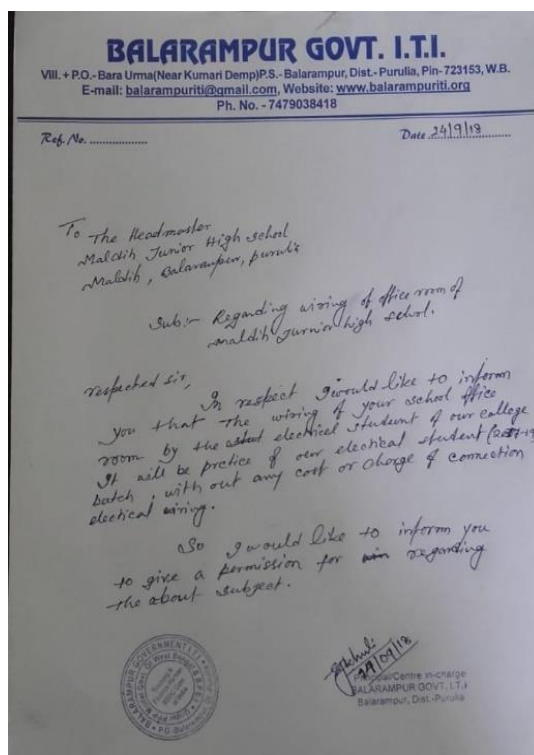 BALARAMPUR GOVT. I.T.I.
Vill. + P.O.- Bara Urma(Near Kumari Demp)P.S.- Balarampur, Dist.- Purulia, Pin- 723153, W.B.
E-mail: balarampuriti@gmail.com, Website: www.balarampuriti.org
Ph. No. - 7479038418
Ref. No. ..................
Date 24/9/18
To The Headmaster
Maldih Junior High school
Maldih, Balarampur, purulia
Sub:- Regarding wiring of office room of
maldih Junior high school.
respected sir,
In respect I would like to inform
you that The wiring of your school office
room by the electrical student of our college
It will be prctice of our electical student (
batch, with out any cost or charge of connection
electical wiring.
So I would like to inform you
to give a permission for regarding
the about subject.
24/09/18
Principal/Centre in-charge
BALARAMPUR GOVT. I.T.I
Balarampur, Dist.-Purulia
BALARAMPUR GOVERNMENT I.T.I.